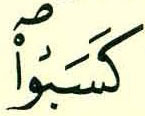 كَسَبُوا۟ ۖ